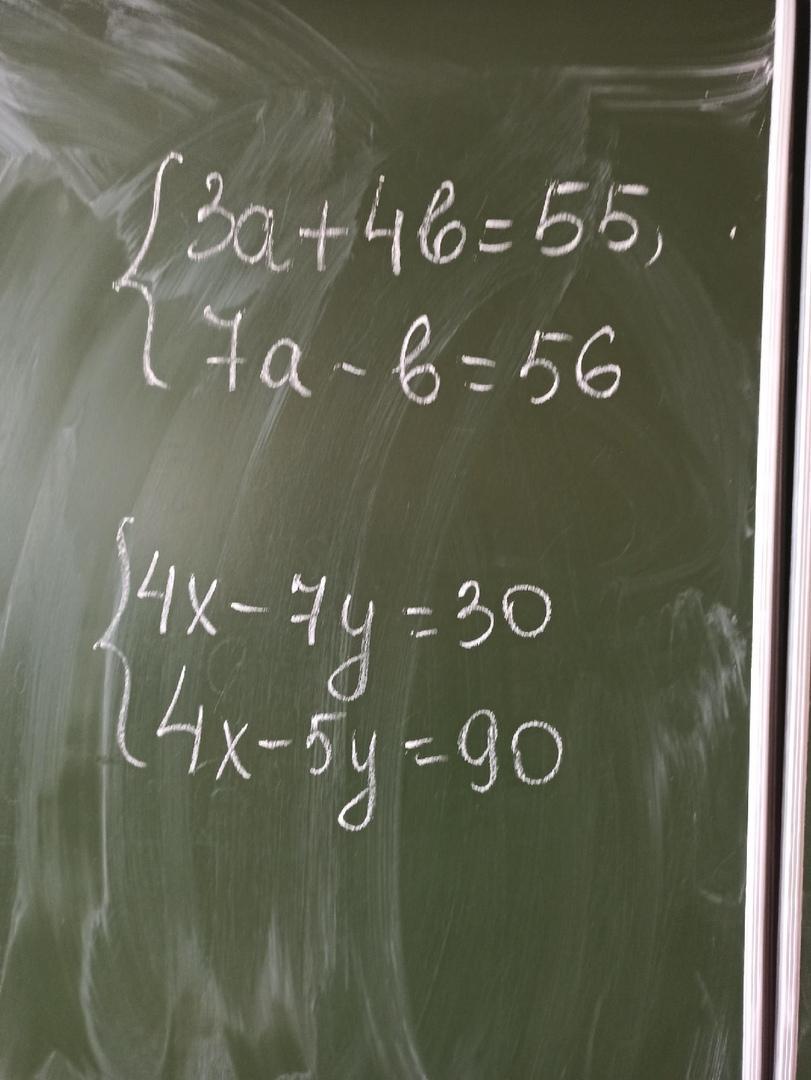 3a+4b=55,
7a-b=56
4x-7y=30
4x-5y=90